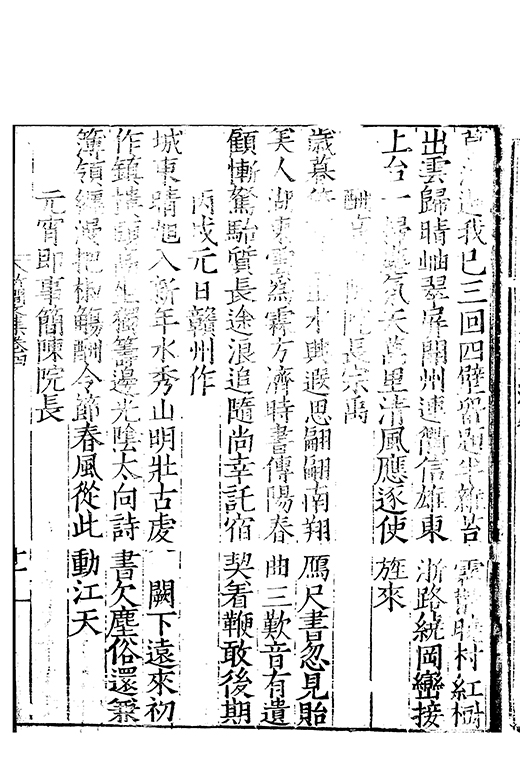 過我已三回四壁留題半雜苔曉村紅樹
出雲歸晴岫翠屏開州連衢信雄東浙路繞岡巒接
上台一掃氛天萬里清風應逐使旌來
酬院長宗禹
歲暮水興遐思翩翩南翔鴈尺書忽見貽
美人湖東雲霧方濟時書傳陽春曲三歎音有遺
顧慚駑駘質長途浪追隨尚幸託宿契看鞭敢後期
丙戌元日贛州作
城東晴旭入新年水秀山明壯古虔闕下遠來初
作鎮頭坐獨籌邊光陰太向詩書欠塵俗還縈
簿領纏漫把椒觴酬令節春風從此動江天
元宵即事簡陳院長
集卷四
十一